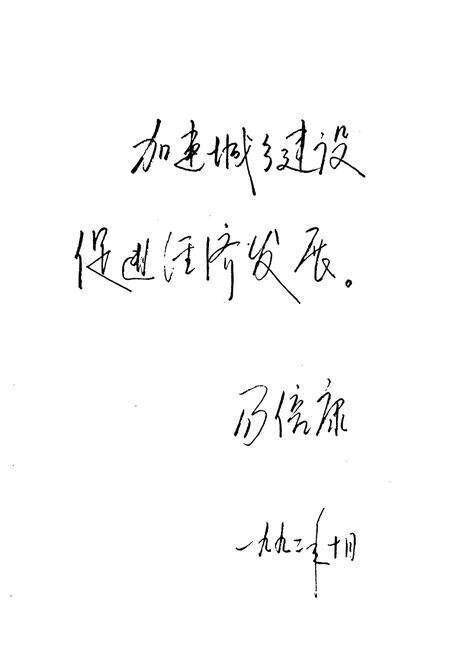 加速城乡建设
促进经济发展。
一九九二年十月